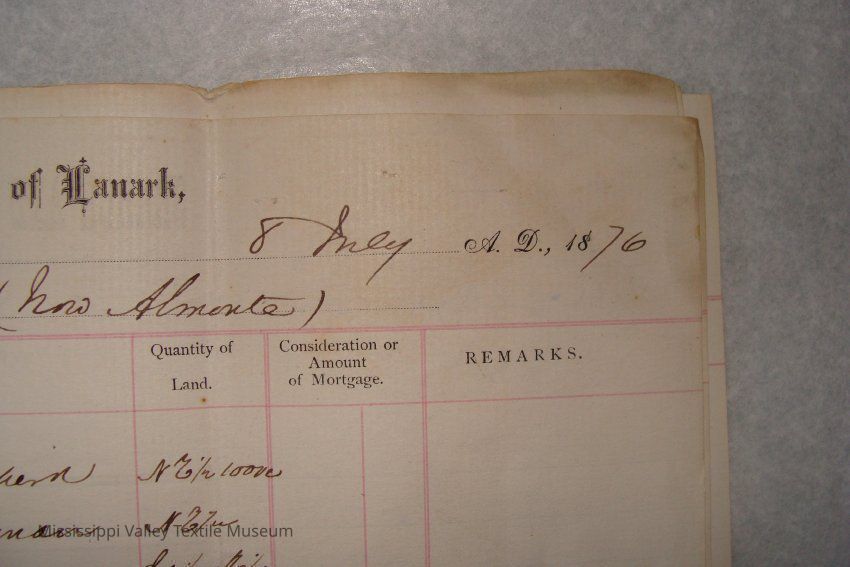 of Lanark,
8 July A. D., 1876
(Now Almonte)
Quantity of
Land.
Consideration or
Amount
of Mortgage.
REMARKS.
N E 1/2 100 ac
Mississippi Valley Textile Museum